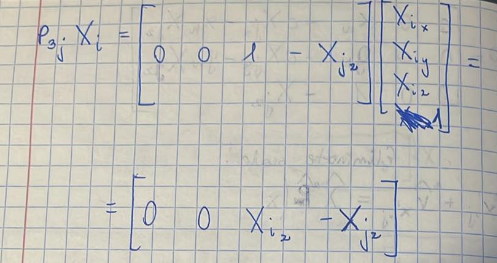 P_{3j} X_i = [ 0 0 1 - X_{jz} ] [ X_{ix} X_{iy} X_{iz} 1 ] =
= [ 0 0 X_{iz} - X_{jz} ]